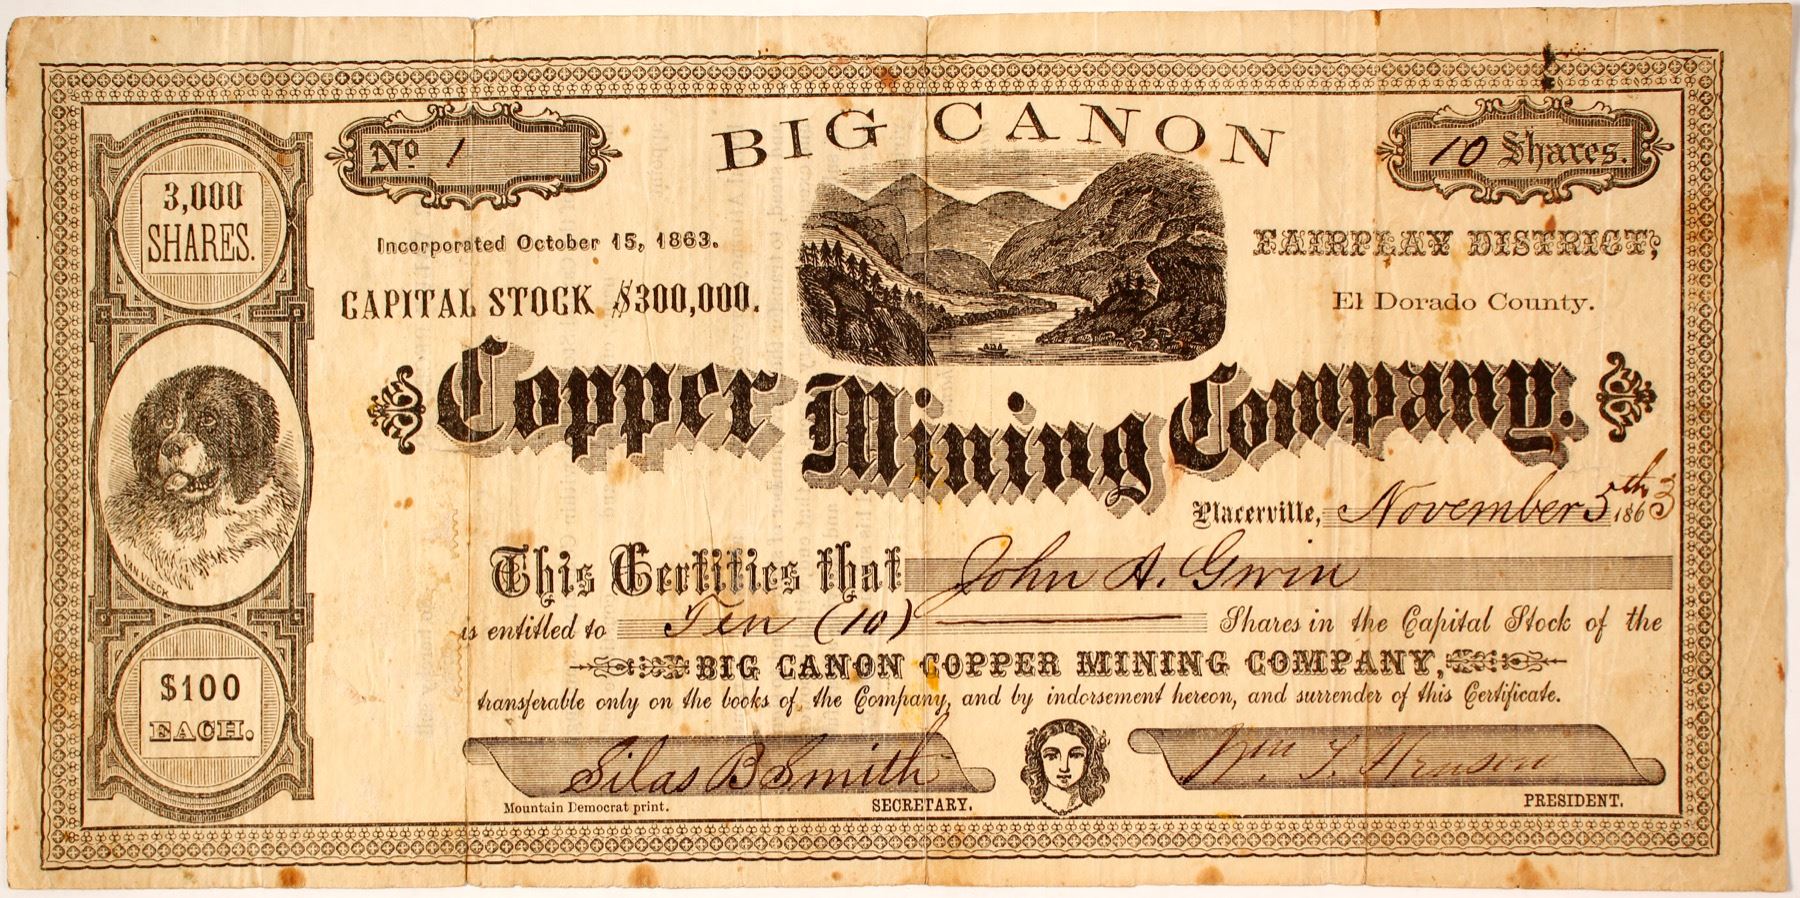 BIG CANON
No 1
10 Shares.
3,000
SHARES.
Incorporated October 15, 1863.
FAIRPLAY DISTRICT,
CAPITAL STOCK $300,000.
El Dorado County.
Copper Mining Company.
Placerville, November 5th 1863
This Certifies that John A. Gwin
VAN VLECK
is entitled to Ten (10) Shares in the Capital Stock of the
BIG CANON COPPER MINING COMPANY,
$100
EACH.
transferable only on the books of the Company, and by indorsement hereon, and surrender of this Certificate.
Silas B Smith
Wm
Mountain Democrat print.
SECRETARY.
PRESIDENT.